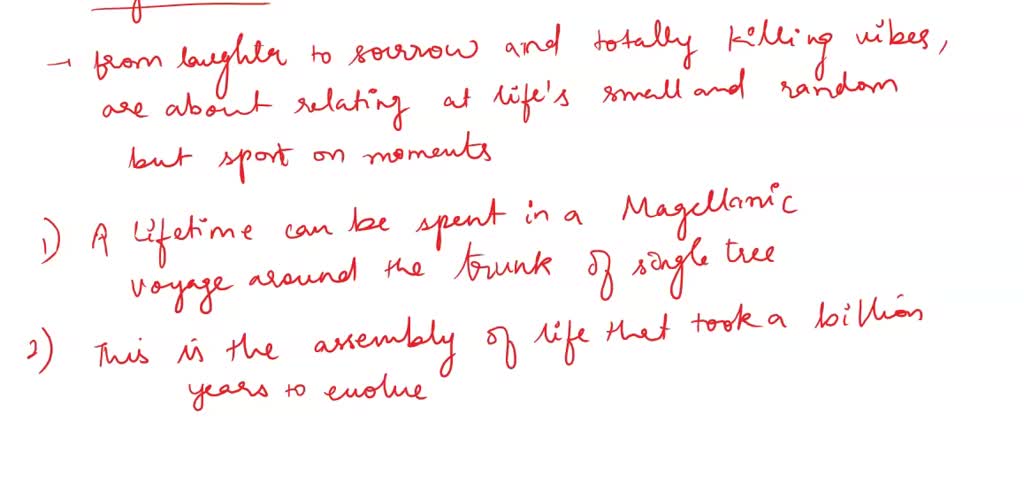 → from laughter to sorrow and totally killing vibes,
are about relating at life's small and random
but sport on moments
1) A Lifetime can be spent in a Magellanic
voyage around the trunk of single tree
2) This is the assembly of life that took a billion
years to evolve